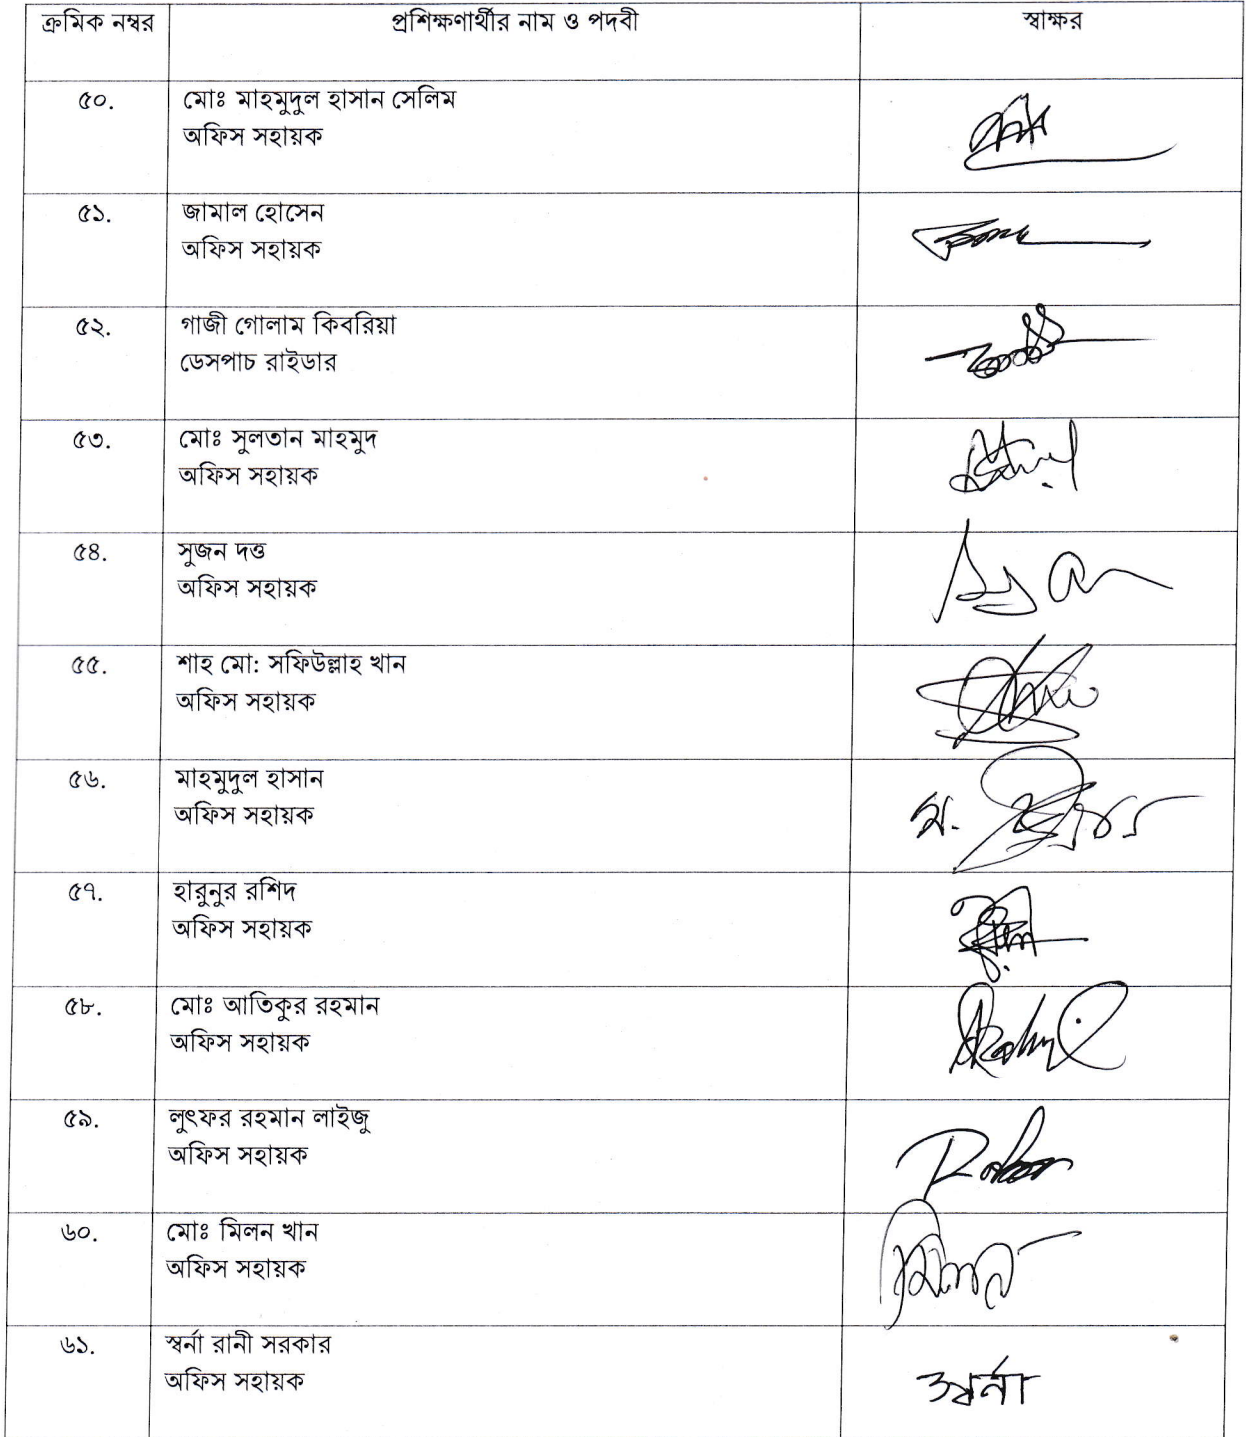 ক্রমিক নম্বর প্রশিক্ষণার্থীর নাম ও পদবী স্বাক্ষর
৫০. মোঃ মাহমুদুল হাসান সেলিম
অফিস সহায়ক
৫১. জামাল হোসেন
অফিস সহায়ক
৫২. গাজী গোলাম কিবরিয়া
ডেসপাচ রাইডার
৫৩. মোঃ সুলতান মাহমুদ
অফিস সহায়ক
৫৪. সুজন দত্ত
অফিস সহায়ক
৫৫. শাহ মো: সফিউল্লাহ খান
অফিস সহায়ক
৫৬. মাহমুদুল হাসান
অফিস সহায়ক
৫৭. হারুনুর রশিদ
অফিস সহায়ক
৫৮. মোঃ আতিকুর রহমান
অফিস সহায়ক
৫৯. লুৎফর রহমান লাইজু
অফিস সহায়ক
৬০. মোঃ মিলন খান
অফিস সহায়ক
মিলন
৬১. স্বর্না রানী সরকার
অফিস সহায়ক
স্বর্না